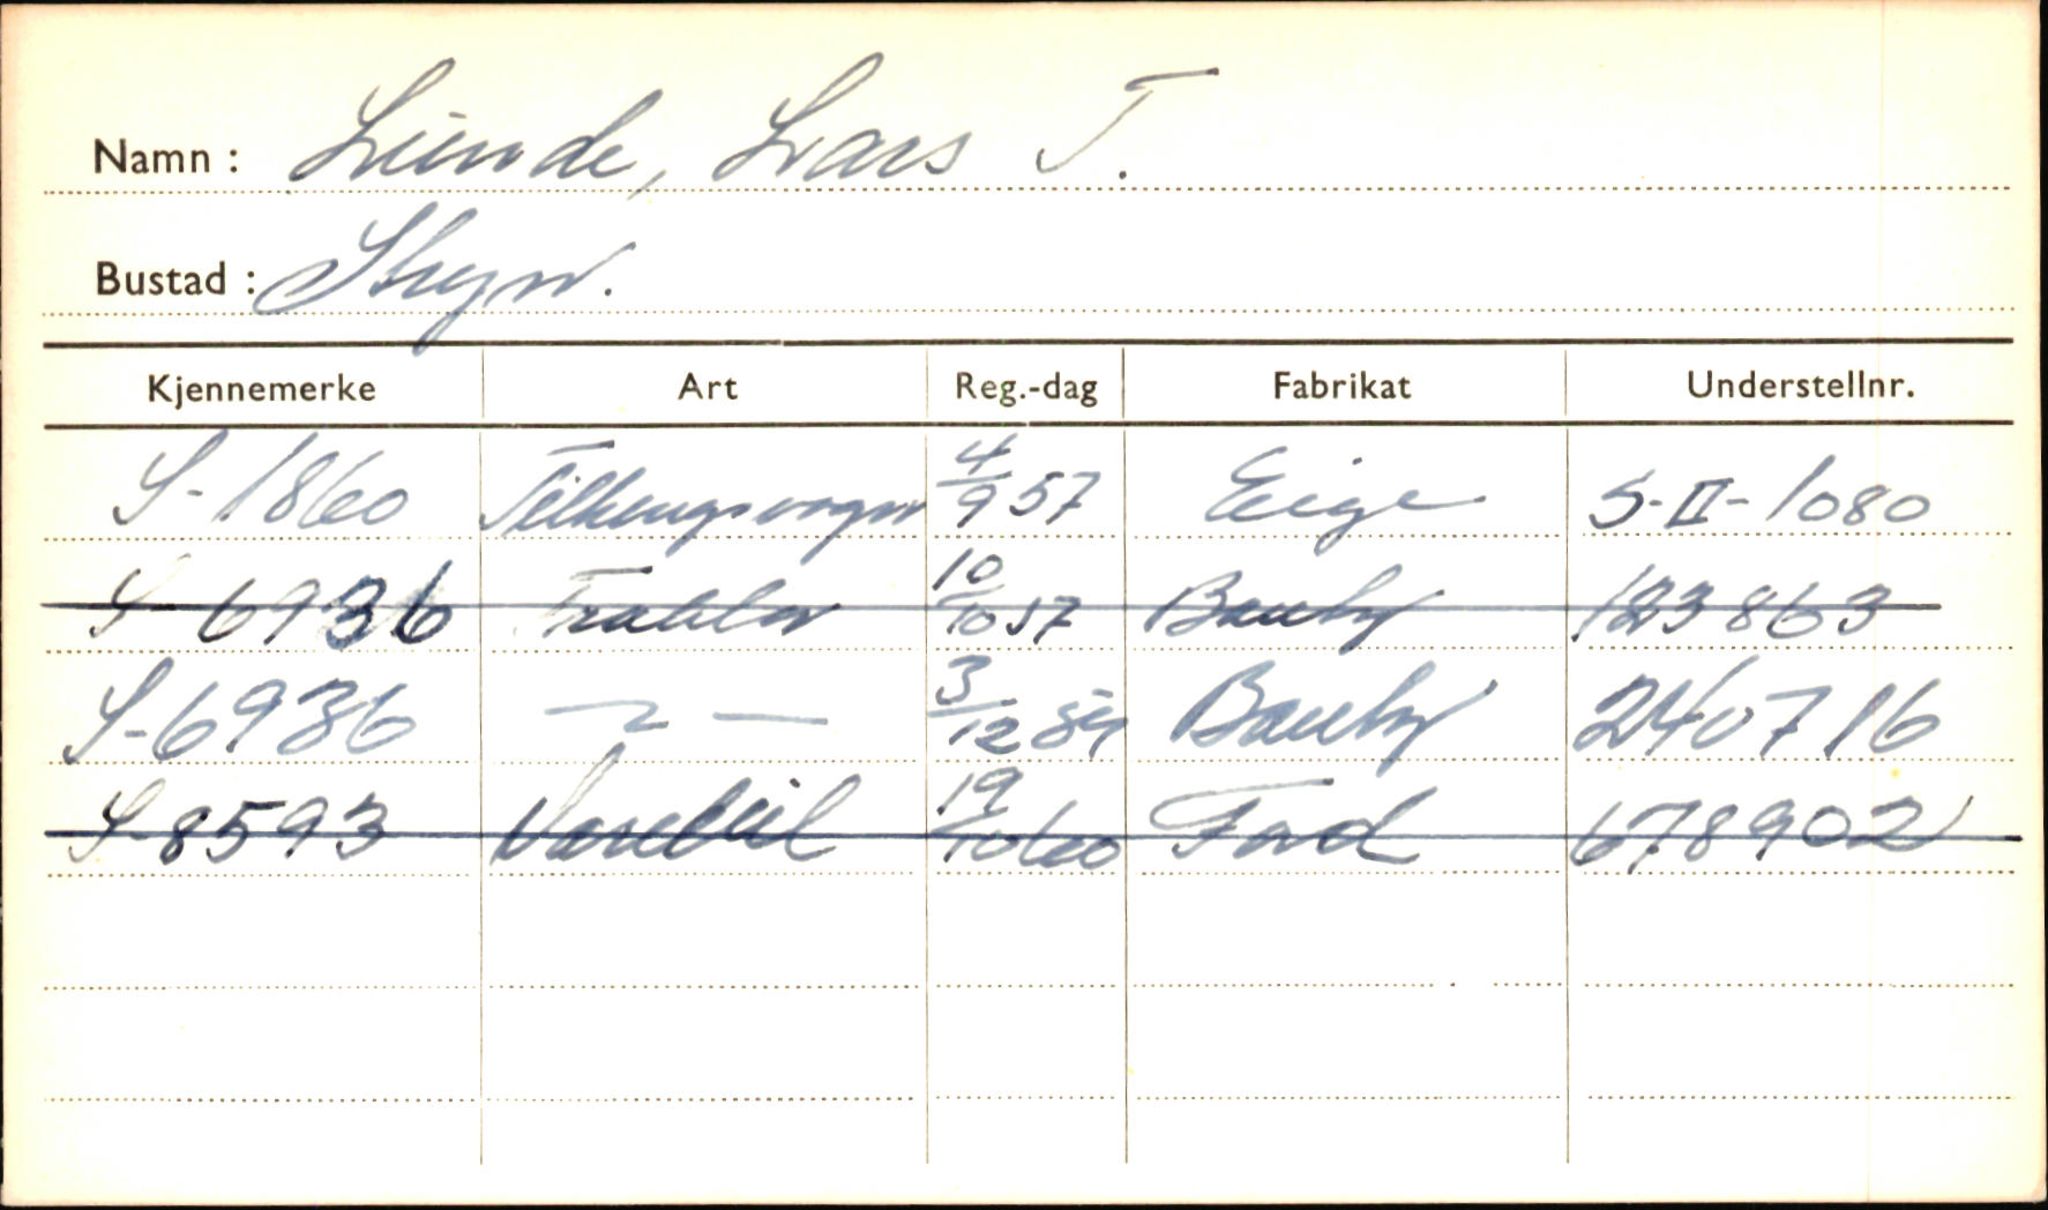 Namn: Lunde, Lars T.
Bustad: Stryn.
Kjennemerke Art Reg.-dag Fabrikat Understellnr.
S-1860 Tilhengsvogn 4/9 57 Eige S-II-1080
S-6936 Traktor 10/10 57 123863
S-6936 —〃— 3/12 59 240716
S-8593 Varebil 19/10 60 Ford 678902